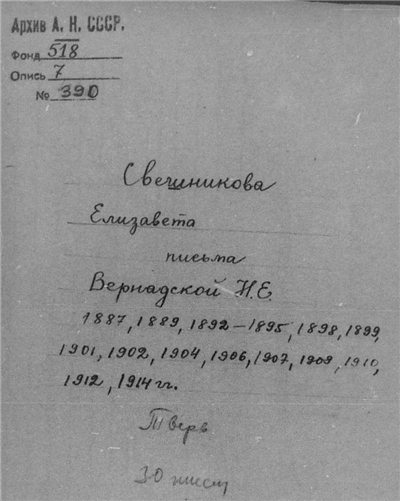 Архив А. Н. СССР.
Фонд 518
Опись 7
№ 390
Свешникова
Елизавета
письма
Вернадской Н.Е.
1887, 1889, 1892 – 1895, 1898, 1899,
1901, 1902, 1904, 1906, 1907, 1909, 1910,
1912, 1914 гг.
Тверь
30 писем